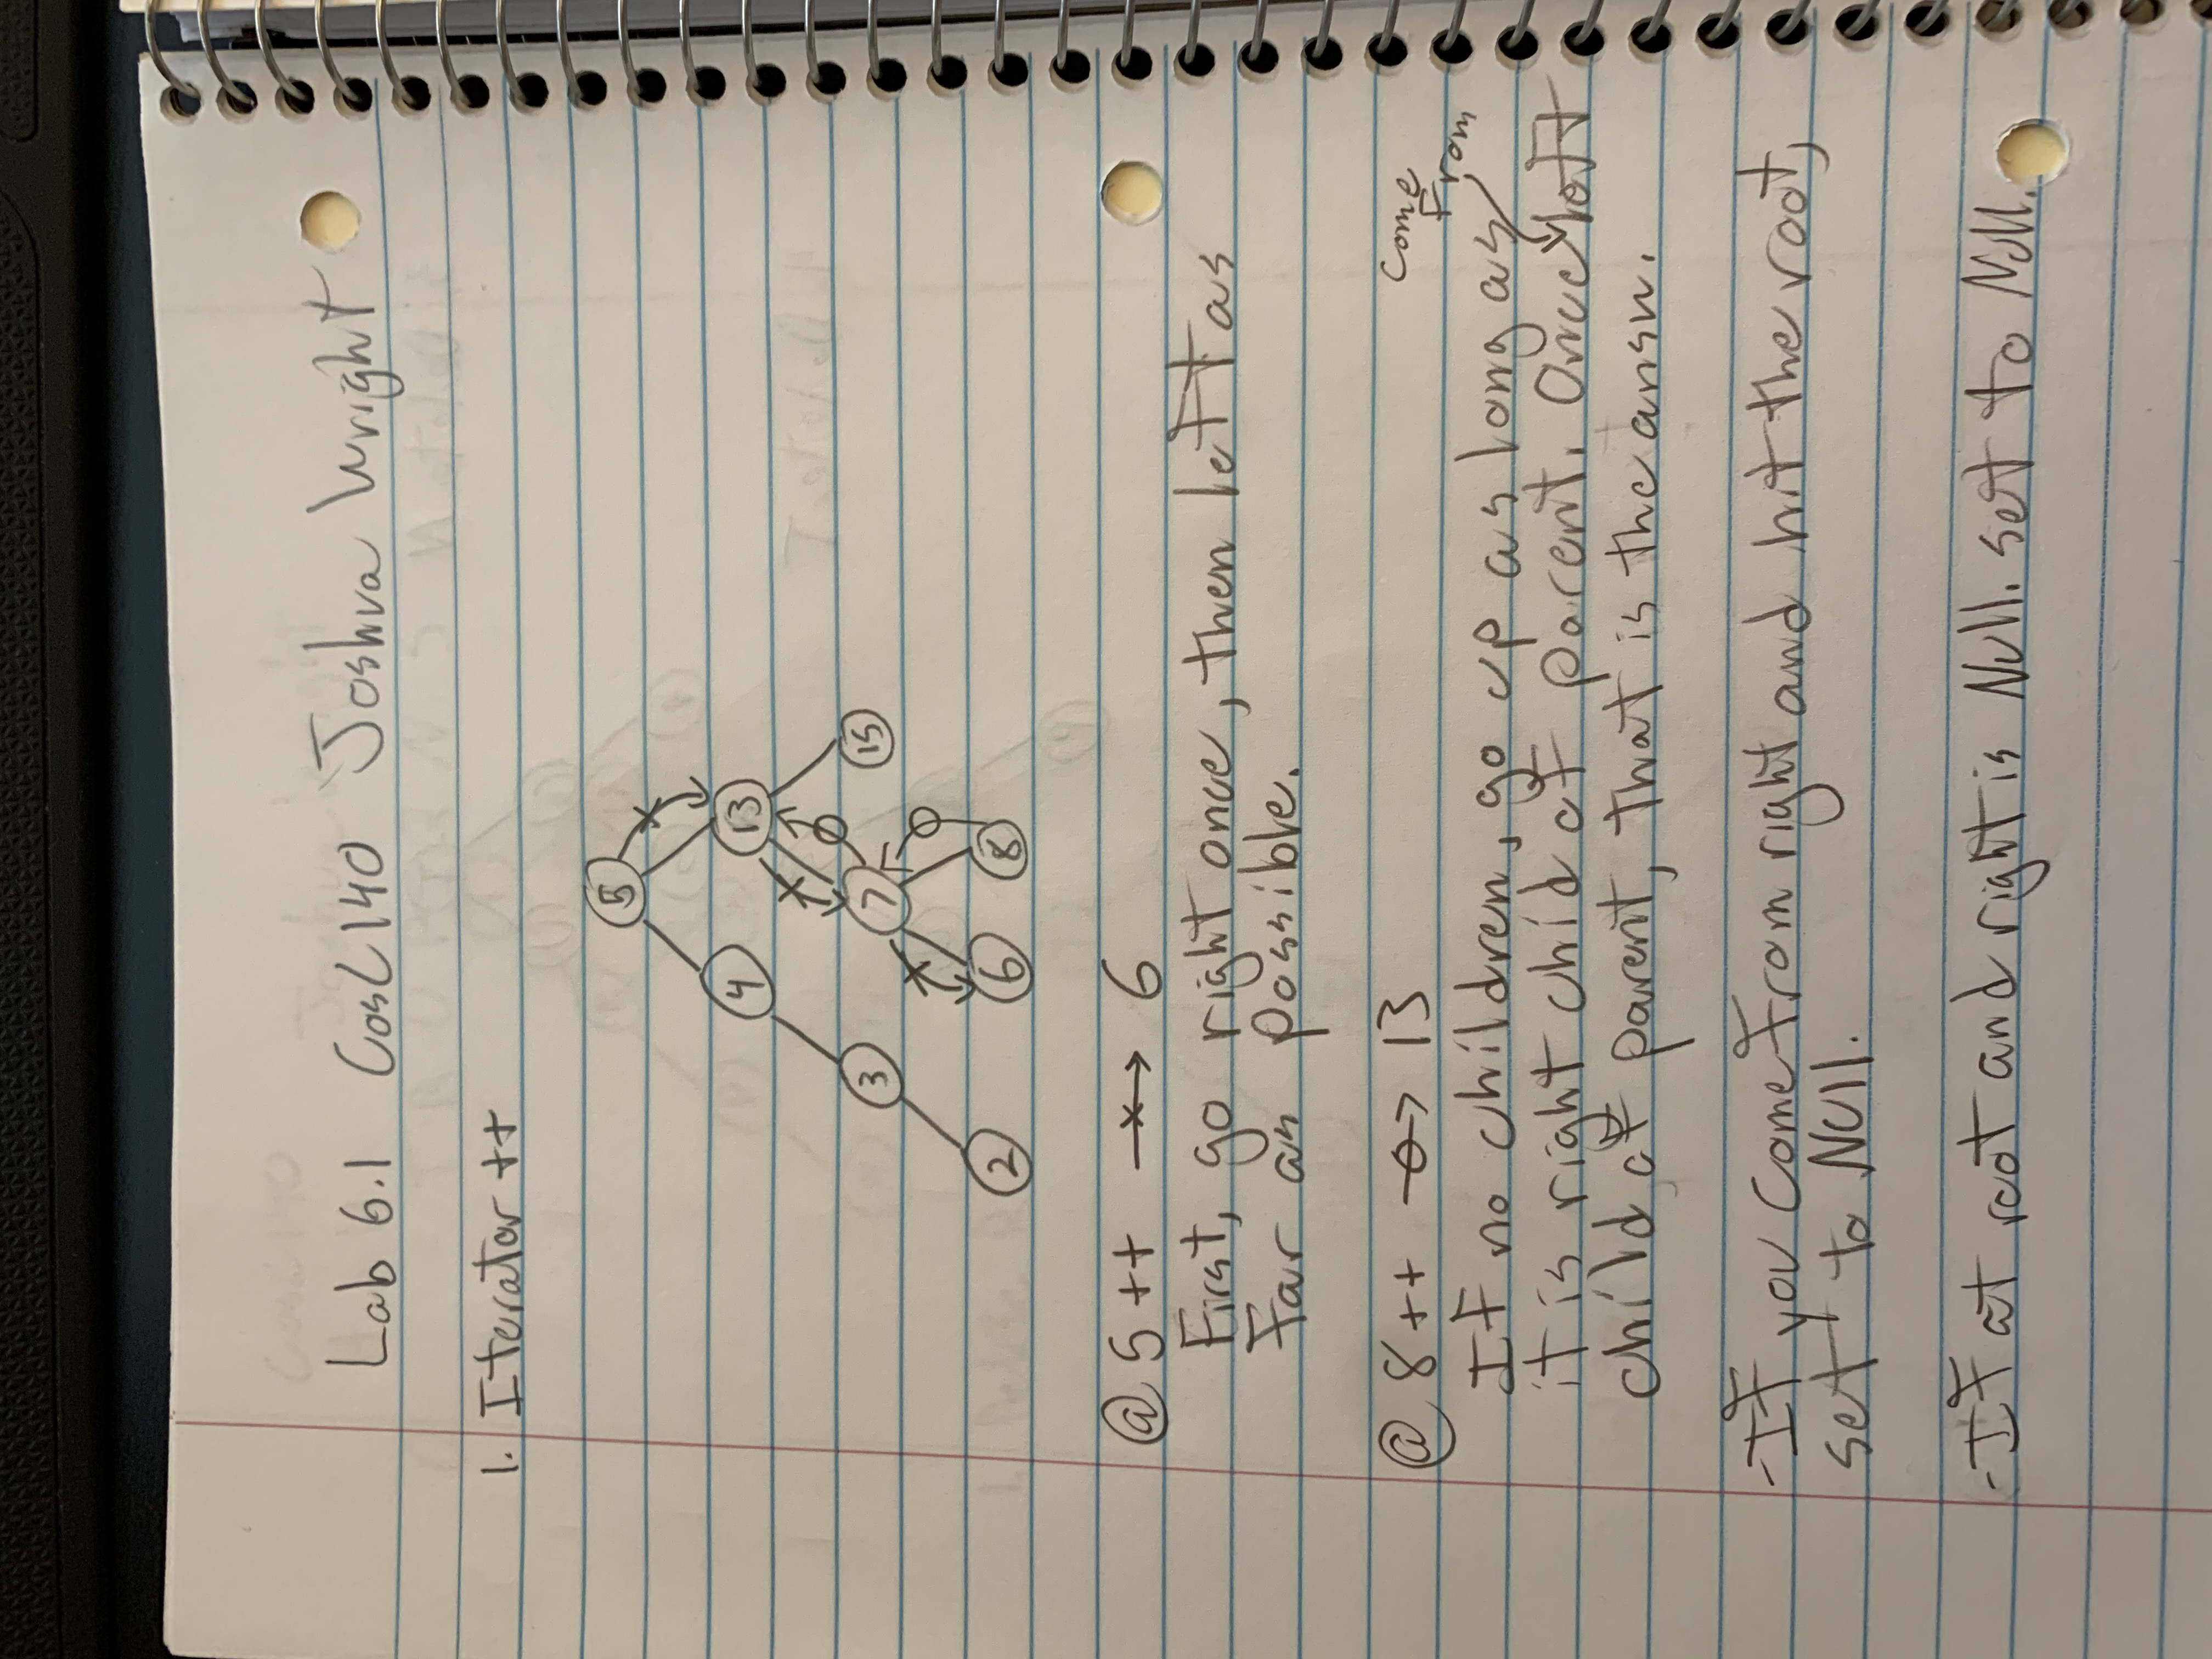 Lab 6.1 Cosc140 Joshua Wright
1. Iterator ++
5
4 13
3 7 15
2 6 8
@ 5 ++ → 6
First, go right once, then left as
far as possible.
@ 8 ++ → 13
Come
From
If no children, go up as long as
it is right chid of parent. Once left
child of parent, that is the answ.
-If you come from right and hit the root,
set to Null.
-If at root and right is Null. set to Null.